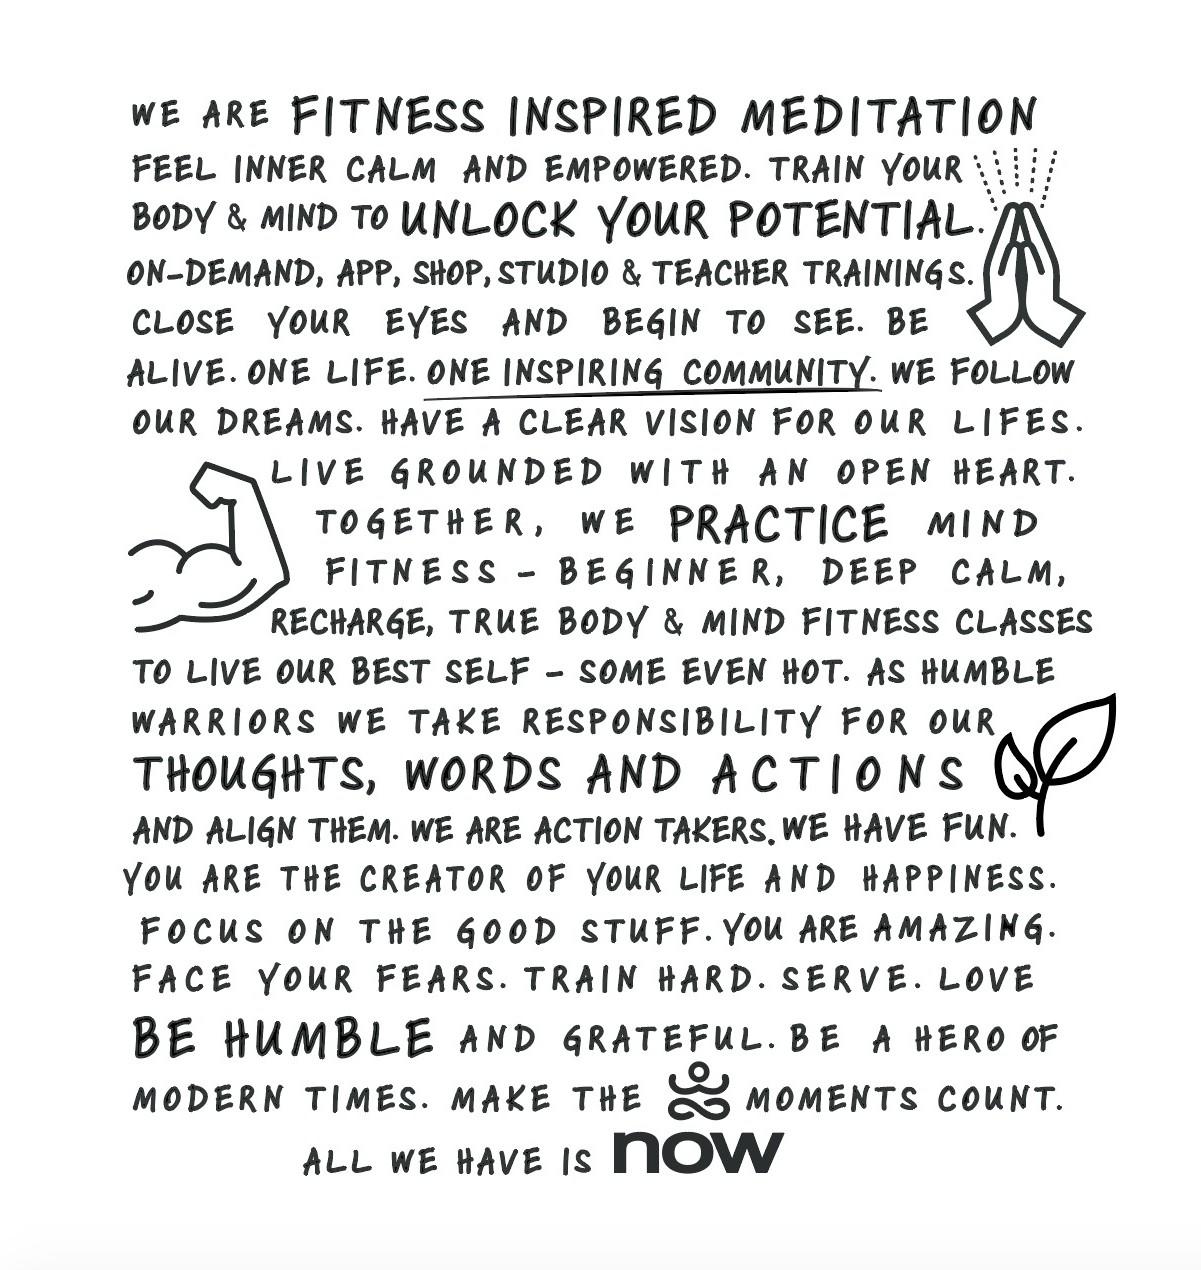 WE ARE FITNESS INSPIRED MEDITATION
FEEL INNER CALM AND EMPOWERED. TRAIN YOUR
BODY & MIND TO UNLOCK YOUR POTENTIAL.
ON-DEMAND, APP, SHOP, STUDIO & TEACHER TRAININGS.
CLOSE YOUR EYES AND BEGIN TO SEE. BE
ALIVE. ONE LIFE. ONE INSPIRING COMMUNITY. WE FOLLOW
OUR DREAMS. HAVE A CLEAR VISION FOR OUR LIFES.
LIVE GROUNDED WITH AN OPEN HEART.
TOGETHER, WE PRACTICE MIND
FITNESS - BEGINNER, DEEP CALM,
RECHARGE, TRUE BODY & MIND FITNESS CLASSES
TO LIVE OUR BEST SELF - SOME EVEN HOT. AS HUMBLE
WARRIORS WE TAKE RESPONSIBILITY FOR OUR
THOUGHTS, WORDS AND ACTIONS
AND ALIGN THEM. WE ARE ACTION TAKERS. WE HAVE FUN.
YOU ARE THE CREATOR OF YOUR LIFE AND HAPPINESS.
FOCUS ON THE GOOD STUFF. YOU ARE AMAZING.
FACE YOUR FEARS. TRAIN HARD. SERVE. LOVE
BE HUMBLE AND GRATEFUL. BE A HERO OF
MODERN TIMES. MAKE THE MOMENTS COUNT.
ALL WE HAVE IS now